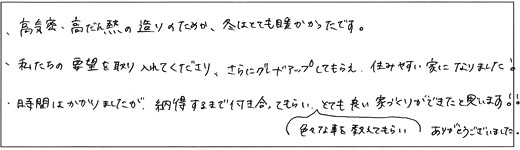 、高気密・高だん熱の造りのためか、冬はとても暖かかったです。
・私たちの要望を取り入れてくださり、さらにグレードアップしてもらえ、住みやすい家になりました!
・時間はかかりましたが、納得するまで付き合ってもらい、とても良い家づくりができたと思います!!
(色々な事を教えてもらい) ありがとうございました。